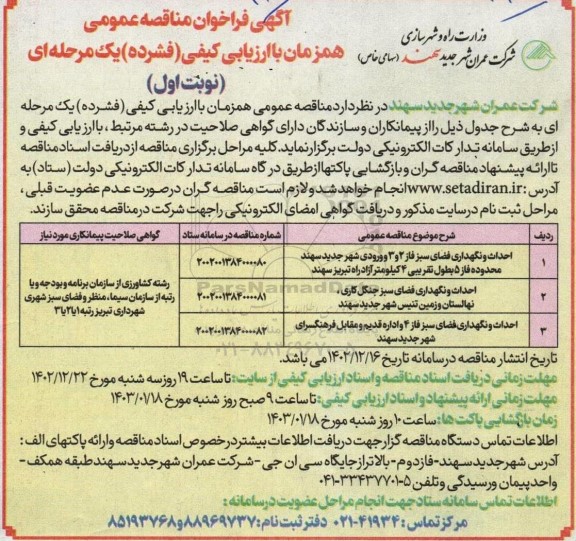 آگهی فراخوان مناقصه عمومی
همزمان با ارزیابی کیفی (فشرده) یک مرحله ای
(نوبت اول)
وزارت راه و شهرسازی
شرکت عمران شهر جدید سهند (سهامی خاص)
شرکت عمران شهر جدید سهند در نظر دارد مناقصه عمومی همزمان با ارزیابی کیفی (فشرده) یک مرحله
ای به شرح جدول ذیل را از پیمانکاران و سازندگان دارای گواهی صلاحیت در رشته مرتبط ، با ارزیابی کیفی و
از طریق سامانه تدارکات الکترونیکی دولت برگزار نماید. کلیه مراحل برگزاری مناقصه از دریافت اسناد مناقصه
تا ارائه پیشنهاد مناقصه گران و بازگشایی پاکتها از طریق درگاه سامانه تدارکات الکترونیکی دولت (ستاد) به
آدرس : www.setadiran.ir انجام خواهد شد و لازم است مناقصه گران در صورت عدم عضویت قبلی ،
مراحل ثبت نام در سایت مذکور و دریافت گواهی امضای الکترونیکی را جهت شرکت در مناقصه محقق سازند.
ردیف شرح موضوع مناقصه عمومی شماره مناقصه در سامانه ستاد گواهی صلاحیت پیمانکاری مورد نیاز
۱ احداث و نگهداری فضای سبز فاز ۲ و ۳ و ورودی شهر جدید سهند
محدوده فاز ۵ بطول تقریبی ۴ کیلومتر آزادراه تبریز سهند ۲۰۰۲۰۰۱۳۸۴۰۰۰۰۸۰
۲ احداث و نگهداری فضای سبز جنگل کاری ،
نهالستان و زمین تنیس شهر جدید سهند ۲۰۰۲۰۰۱۳۸۴۰۰۰۰۸۱
۳ احداث و نگهداری فضای سبز فاز ۴ و اداره قدیم و مقابل فرهنگسرای
شهر جدید سهند ۲۰۰۲۰۰۱۳۸۴۰۰۰۰۸۲
رشته کشاورزی از سازمان برنامه و بودجه و یا
رتبه از سازمان سیما، منظر و فضای سبز شهری
شهرداری تبریز رتبه ۱ یا ۲ یا ۳
تاریخ انتشار مناقصه در سامانه تاریخ ۱۴۰۲/۱۲/۱۶ می باشد.
مهلت زمانی دریافت اسناد مناقصه و اسناد ارزیابی کیفی از سایت: تا ساعت ۱۹ روز سه شنبه مورخ ۱۴۰۲/۱۲/۲۲
مهلت زمانی ارائه پیشنهاد و اسناد ارزیابی کیفی: تا ساعت ۹ صبح روز شنبه مورخ ۱۴۰۳/۰۱/۱۸
زمان بازگشایی پاکت ها: ساعت ۱۰ روز شنبه مورخ ۱۴۰۳/۰۱/۱۸
اطلاعات تماس دستگاه مناقصه گزار جهت دریافت اطلاعات بیشتر در خصوص اسناد مناقصه و ارائه پاکتهای الف :
آدرس شهر جدید سهند - فاز دوم - بالاتر از جایگاه سی ان جی - شرکت عمران شهر جدید سهند طبقه همکف -
واحد پیمان و رسیدگی و تلفن ۵-۳۳۴۳۷۷۰۱-۰۴۱
اطلاعات تماس سامانه ستاد جهت انجام مراحل عضویت در سامانه :
مرکز تماس : ۴۱۹۳۴-۰۲۱ دفتر ثبت نام : ۸۸۹۶۹۷۳۷ و ۸۵۱۹۳۷۶۸